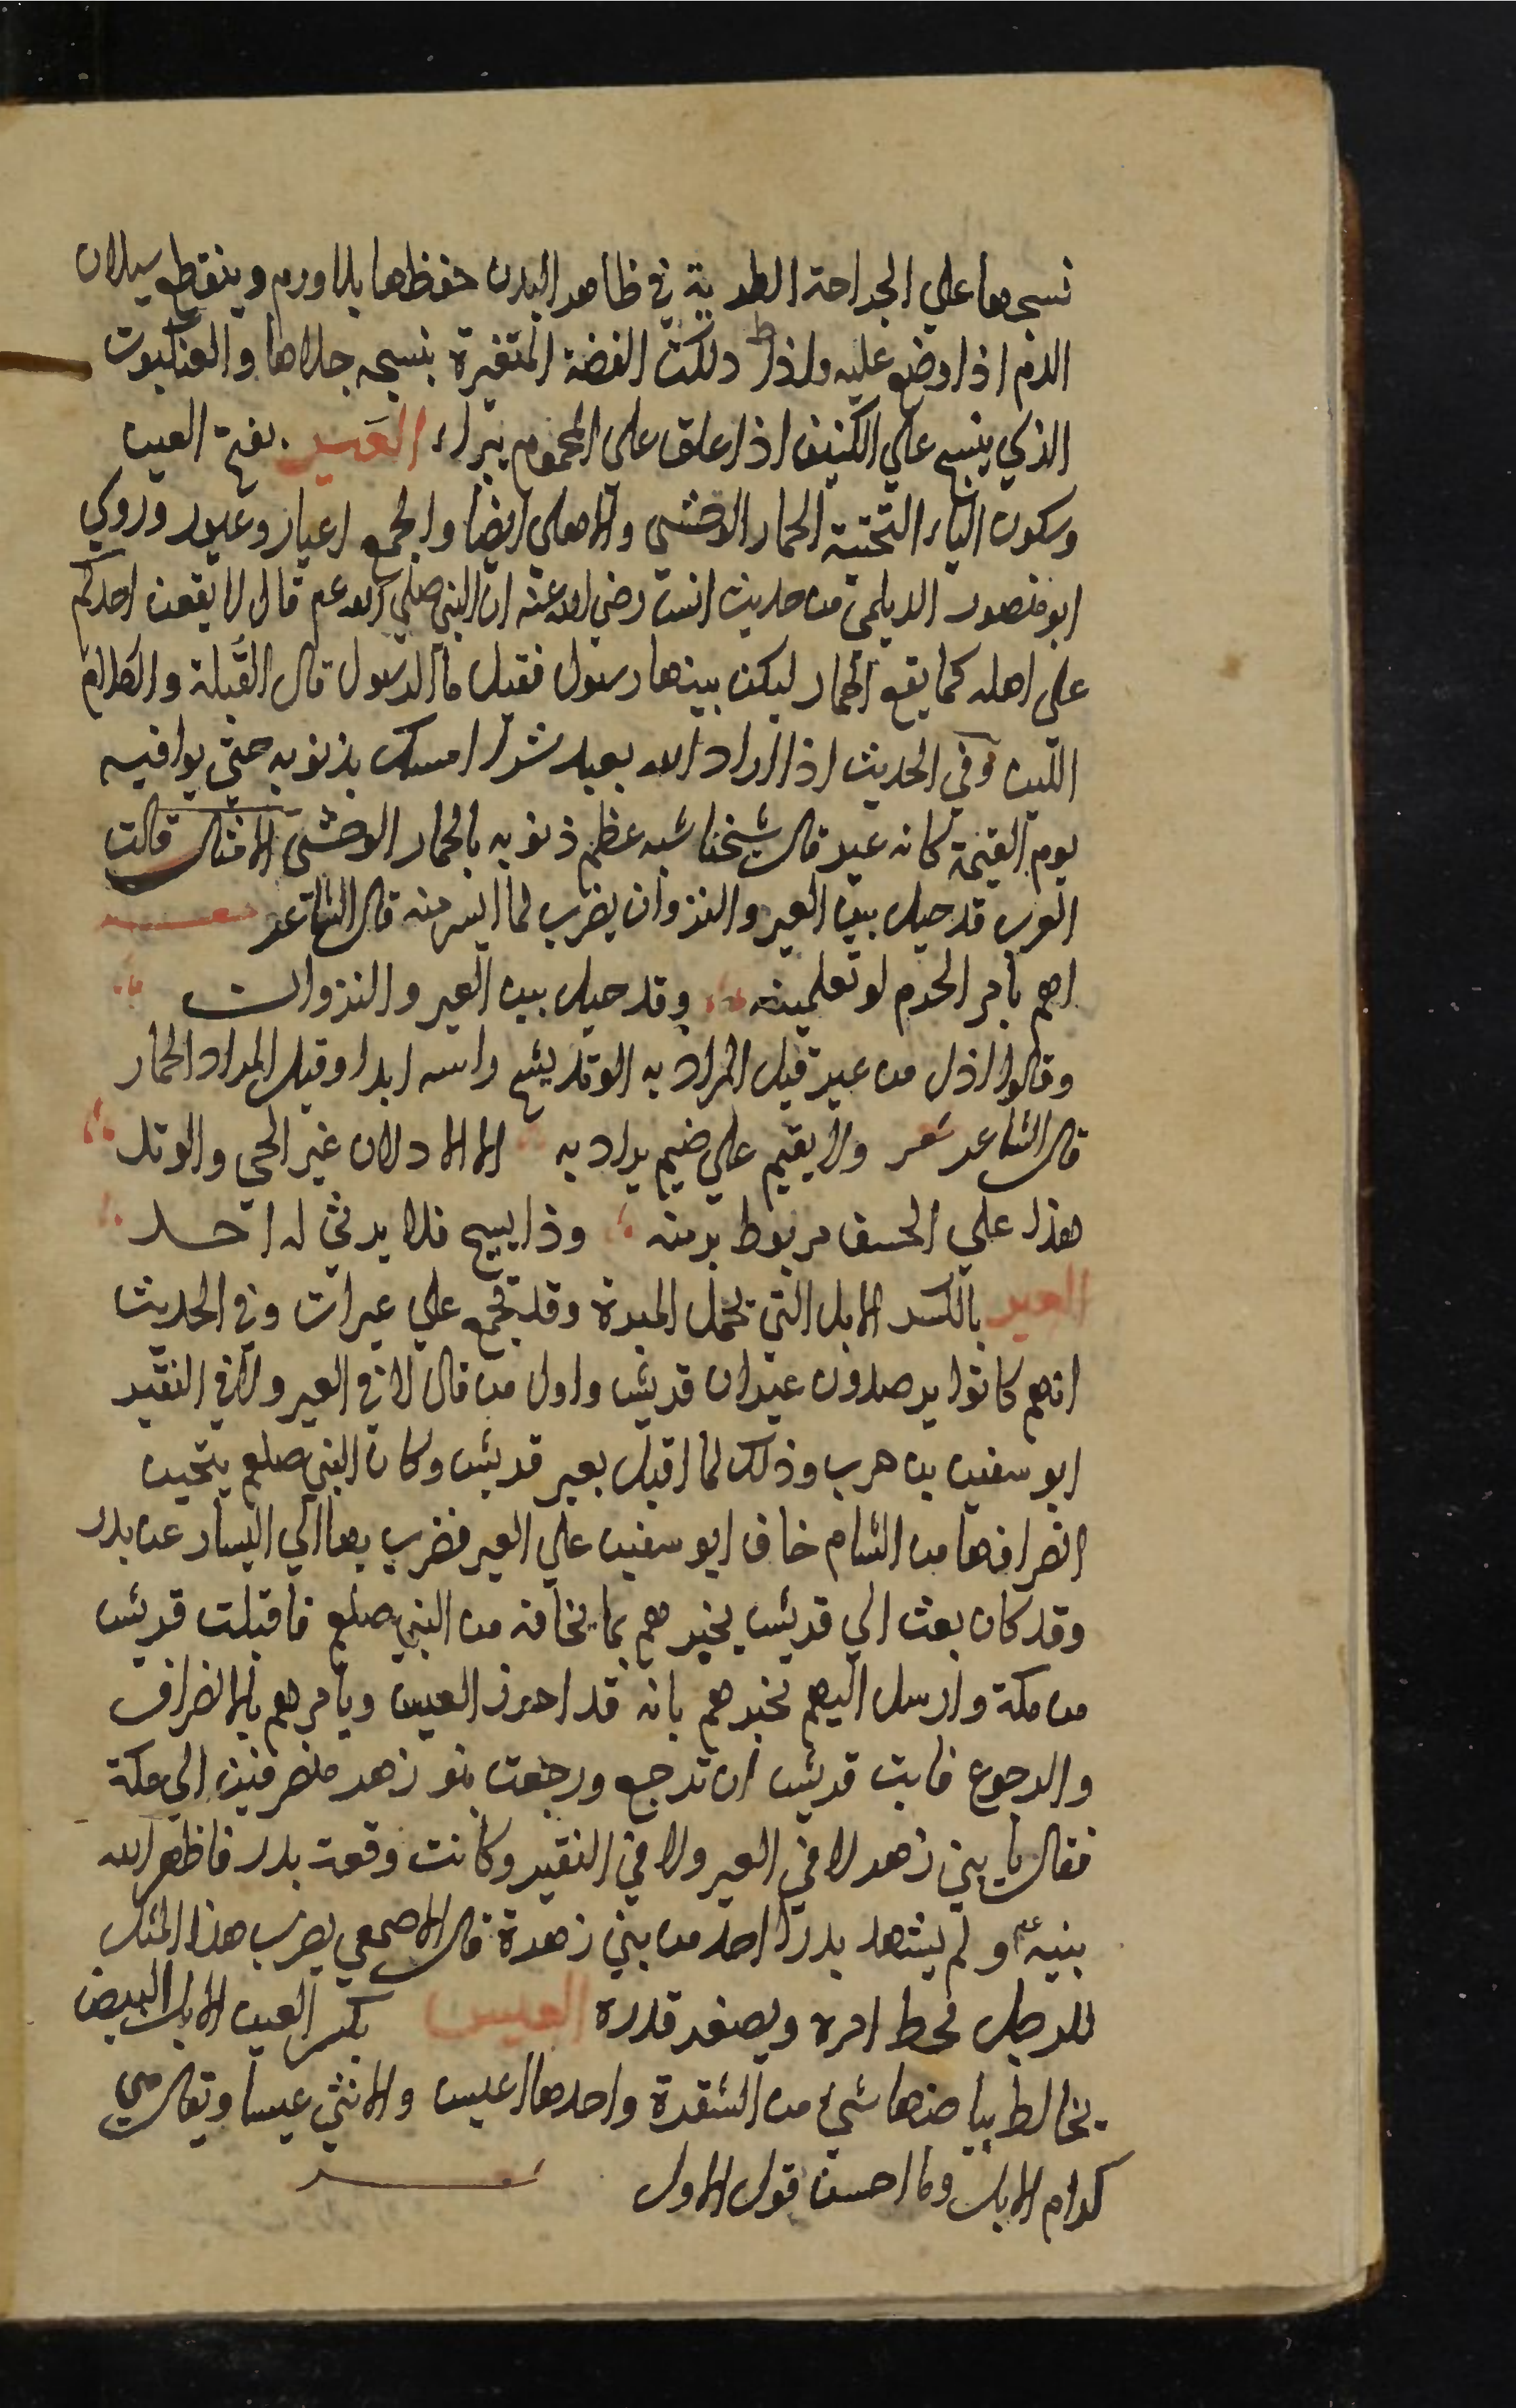 نسجها علي الجراحة الطرية في ظاهر البدن حفظها بلا ورم وينقطع سيلان
الدم اذا وضع عليه واذا دلكت الفضة المتغيرة بنسجه جلاها والعنكبوت
الذي ينسج علي الكنيف اذا علق علي المحموم يبراء العَير بفتح العين
وسكون الياء التحتية الحمار الوحشي والاهلي ايضا والجمع اعيار وعيور وروي
ابو منصور الديلمي من حديث انس رضي الله عنه ان النبي صلي الله عم قال لا يقعن احدكم
علي اهله كما يقع الحمار ليكن بينهما رسول فقيل ما الرسول قال القُبلة والكلام
اللين وفي الحديث اذا اراد الله بعبد شرا امسك بذنوبه حتي يوافيه
يوم القيمة كانه عير قال شيخنا شبه عظم ذنوبه بالحمار الوحشي الامثال قالت
العرب قد حيل بين العير والنزوان يضرب لما ايس منه قال الشاعر شعر
اهم بامر الحزم لو تعلمينه وقد حيل بين العير والنزوان
وقالوا اذل من عير قيل المراد به الوتد يشج راسه ابدا وقيل المراد الحمار
قال الشاعر شعر ولا يقيم علي ضيم يراد به الا الاذلان عير الحي والوتد
هذا علي الخسف مربوط برمته وذا يشج فلا يرثي له احد
العير بالكسر الابل التي تحمل الميرة وقد تجمع علي عيرات وفي الحديث
انهم كانوا يرصدون عيران قريش واول من قال لا في العير ولا في النفير
ابو سفين بن حرب وذلك لما اقبل بعير قريش وكان النبي صلعم يتحين
انصرافها من الشام خاف ابو سفين علي العير فضرب بها الي اليسار عن بدر
وقد كان بعث الي قريش يخبرهم بما يخافه من النبي صلعم فاقبلت قريش
من مكة وارسل اليهم يخبرهم بانه قد احرز العير ويامرهم بالانصراف
والرجوع فابت قريش ان ترجع ورجعت بنو زهر منصرفين الي مكة
فقال يا بني زهر لا في العير ولا في النفير وكانت وقعة بدر فاظهر الله
نبيه عم ولم يشهد بدرا احد من بني زهرة قال الاصمعي يضرب هذا المثل
للرجل يحط امره ويصغر قدره العيس بكسر العين الابل البيض
يخالط بياضها شيء من الشقرة واحدها اعيس والانثي عيسا ويقال هي
كرام الابل وما احسن قول الاول شعر